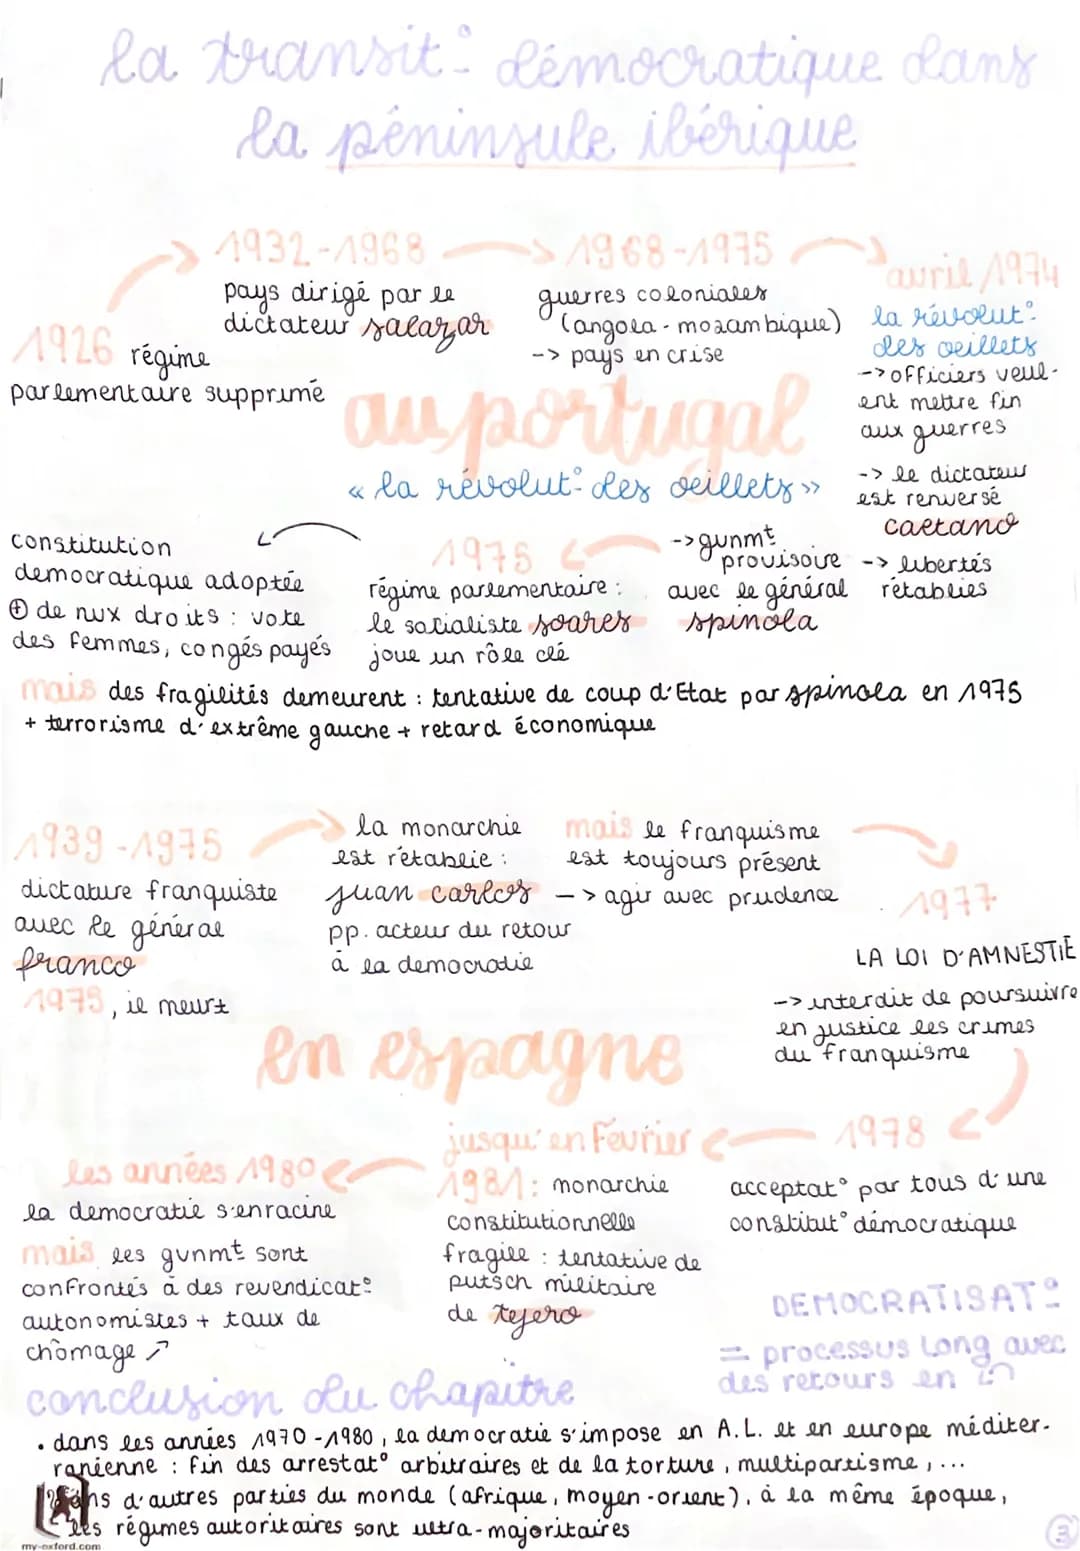 la transit° démocratique dans
la péninsule ibérique
1926 régime
parlementaire supprimé
1932-1968
pays dirigé par le
dictateur salazar
1968-1975
guerres coloniales
(angola - mozambique)
-> pays en crise
avril 1974
la révolut°
des oeillets
-> officiers veul-
ent mettre fin
aux guerres
-> le dictateur
est renversé
caetano
-> libertés
rétablies
au portugal
« la révolut° des oeillets »
-> gunmt
provisoire
avec le général
spinola
1975
régime parlementaire :
le socialiste soares
joue un rôle clé
constitution
democratique adoptée
⊕ de nux droits : vote
des femmes, congés payés
mais des fragilités demeurent : tentative de coup d'Etat par spinola en 1975
+ terrorisme d'extrême gauche + retard économique
1939-1975
dictature franquiste
avec le général
franco
1975, il meurt
la monarchie
est rétablie :
juan carlos
pp. acteur du retour
à la democratie
mais le franquisme
est toujours présent
-> agir avec prudence
1977
LA LOI D'AMNESTIE
-> interdit de poursuivre
en justice les crimes
du franquisme
en espagne
1978
acceptat° par tous d'une
constitut° démocratique
jusqu'en Février
1981 : monarchie
constitutionnelle
fragile : tentative de
putsch militaire
de tejero
les années 1980
la democratie s'enracine
mais les gvnmt sont
confrontés à des revendicat°
autonomistes + taux de
chômage ↗
DEMOCRATISAT°
= processus long avec
des retours en
conclusion du chapitre
• dans les années 1970-1980, la democratie s'impose en A.L. et en europe méditer-
ranienne : fin des arrestat° arbitraires et de la torture, multipartisme, ...
d'autres parties du monde (afrique, moyen-orient), à la même époque,
les régimes autoritaires sont ultra-majoritaires
my-oxford.com
3